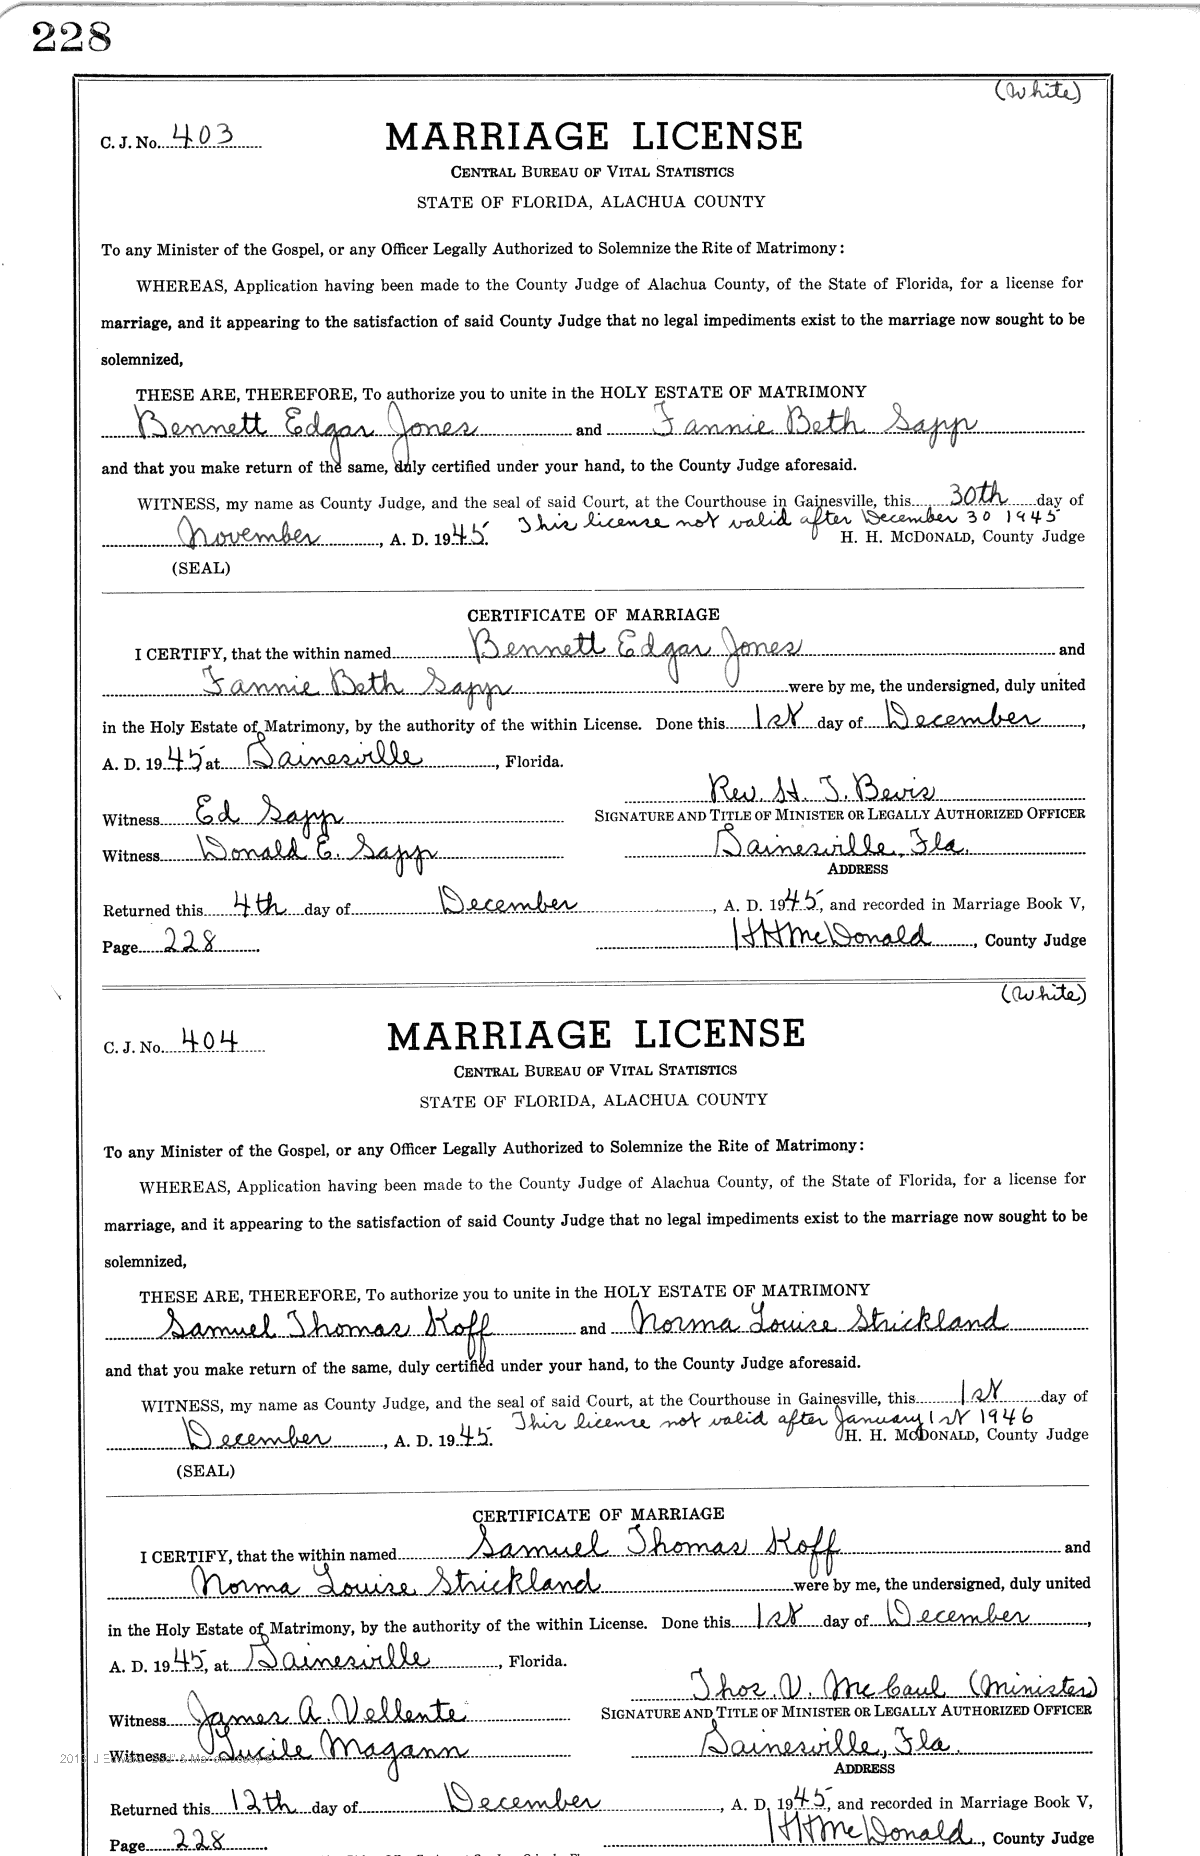 228
(White)
C. J. No. 403
MARRIAGE LICENSE
CENTRAL BUREAU OF VITAL STATISTICS
STATE OF FLORIDA, ALACHUA COUNTY
To any Minister of the Gospel, or any Officer Legally Authorized to Solemnize the Rite of Matrimony:
WHEREAS, Application having been made to the County Judge of Alachua County, of the State of Florida, for a license for
marriage, and it appearing to the satisfaction of said County Judge that no legal impediments exist to the marriage now sought to be
solemnized,
THESE ARE, THEREFORE, To authorize you to unite in the HOLY ESTATE OF MATRIMONY
Bennett Edgar Jones and Fannie Beth Sapp
and that you make return of the same, duly certified under your hand, to the County Judge aforesaid.
WITNESS, my name as County Judge, and the seal of said Court, at the Courthouse in Gainesville, this 30th day of
This license not valid after December 30 1945
November, A. D. 1945. H. H. MCDONALD, County Judge
(SEAL)
CERTIFICATE OF MARRIAGE
I CERTIFY, that the within named Bennett Edgar Jones and
Fannie Beth Sapp were by me, the undersigned, duly united
in the Holy Estate of Matrimony, by the authority of the within License. Done this 1st day of December,
A. D. 1945 at Gainesville, Florida.
Rev. H. T. Bevis
Witness Ed Sapp SIGNATURE AND TITLE OF MINISTER OR LEGALLY AUTHORIZED OFFICER
Witness Donald E. Sapp Gainesville, Fla.
ADDRESS
Returned this 4th day of December, A. D. 1945, and recorded in Marriage Book V,
Page 228 HHMcDonald, County Judge
(White)
C. J. No. 404
MARRIAGE LICENSE
CENTRAL BUREAU OF VITAL STATISTICS
STATE OF FLORIDA, ALACHUA COUNTY
To any Minister of the Gospel, or any Officer Legally Authorized to Solemnize the Rite of Matrimony:
WHEREAS, Application having been made to the County Judge of Alachua County, of the State of Florida, for a license for
marriage, and it appearing to the satisfaction of said County Judge that no legal impediments exist to the marriage now sought to be
solemnized,
THESE ARE, THEREFORE, To authorize you to unite in the HOLY ESTATE OF MATRIMONY
Samuel Thomas Koff and Norma Louise Strickland
and that you make return of the same, duly certified under your hand, to the County Judge aforesaid.
WITNESS, my name as County Judge, and the seal of said Court, at the Courthouse in Gainesville, this 1st day of
This license not valid after January 1st 1946
December, A. D. 1945. H. H. MCDONALD, County Judge
(SEAL)
CERTIFICATE OF MARRIAGE
I CERTIFY, that the within named Samuel Thomas Koff and
Norma Louise Strickland were by me, the undersigned, duly united
in the Holy Estate of Matrimony, by the authority of the within License. Done this 1st day of December,
A. D. 1945, at Gainesville, Florida.
Thos. V. McCaul (Minister)
Witness James A. Vellente SIGNATURE AND TITLE OF MINISTER OR LEGALLY AUTHORIZED OFFICER
Witness Lucile Magann Gainesville, Fla.
ADDRESS
Returned this 12th day of December, A. D. 1945, and recorded in Marriage Book V,
Page 228 HHMcDonald, County Judge